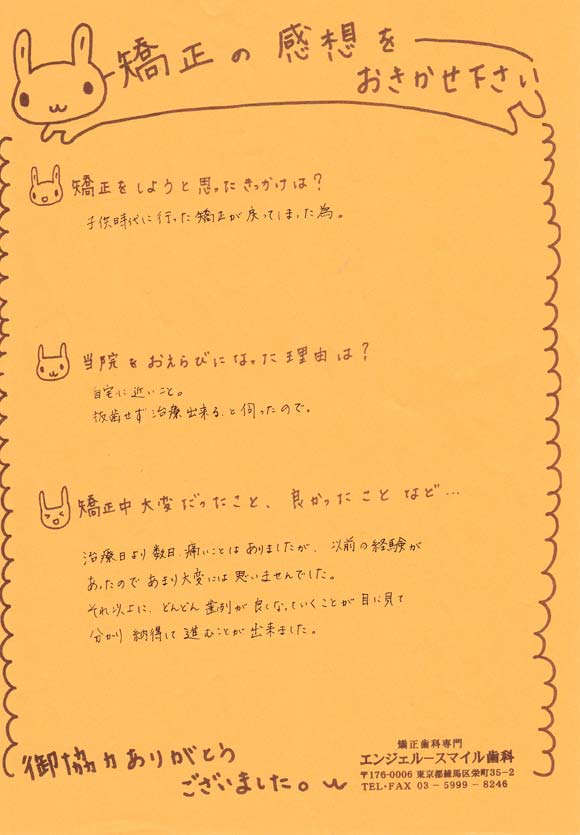 矯正の感想を
おきかせ下さい
矯正をしようと思ったきっかけは?
子供時代に行った矯正が戻ってしまった為。
当院をおえらびになった理由は?
自宅に近いこと。
抜歯せず治療出来る、と伺ったので。
矯正中大変だったこと、良かったことなど…
治療日より数日、痛いことはありましたが、以前の経験が
あったのであまり大変には思いませんでした。
それ以上に、どんどん歯列が良くなっていくことが目に見て
分かり納得して進むことが出来ました。
御協力ありがとう
ございました。
矯正歯科専門
エンジェルースマイル歯科
〒176-0006 東京都練馬区栄町35-2
TEL・FAX 03-5999-8246